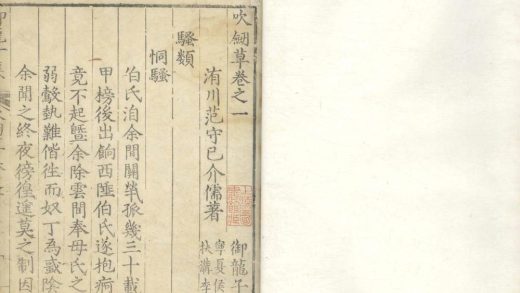 吹劒草卷之一
御龍子
寧夏侯
扶溝李
洧川范守己介儒著
騷類
恫騷
伯氏洎余間關煢孤幾三十載
甲榜後出餉西陲伯氏遂抱痾
竟不起曁余除雲間奉母氏之
弱鷇執難偕徃而奴丁為盛陰
余聞之終夜徬徨遑莫之制因